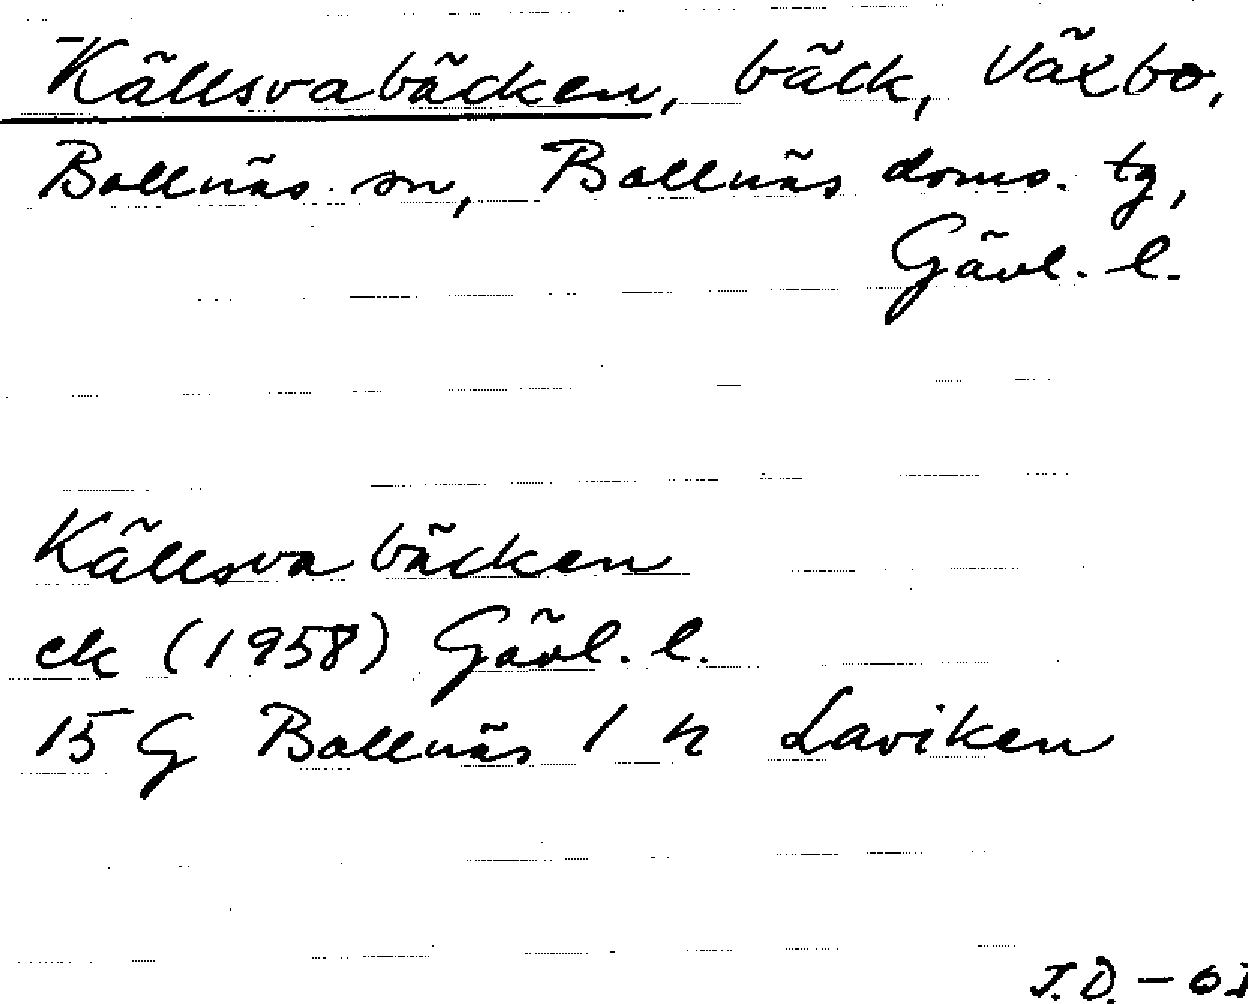 Källsvabäcken, bäck, Växbo,
Bollnäs sn, Bollnäs doms. tg,
Gävl. l.
Källsvabäcken
ek (1958) Gävl. l.
15 G Bollnäs 1 n Laviken
J.D. - 61